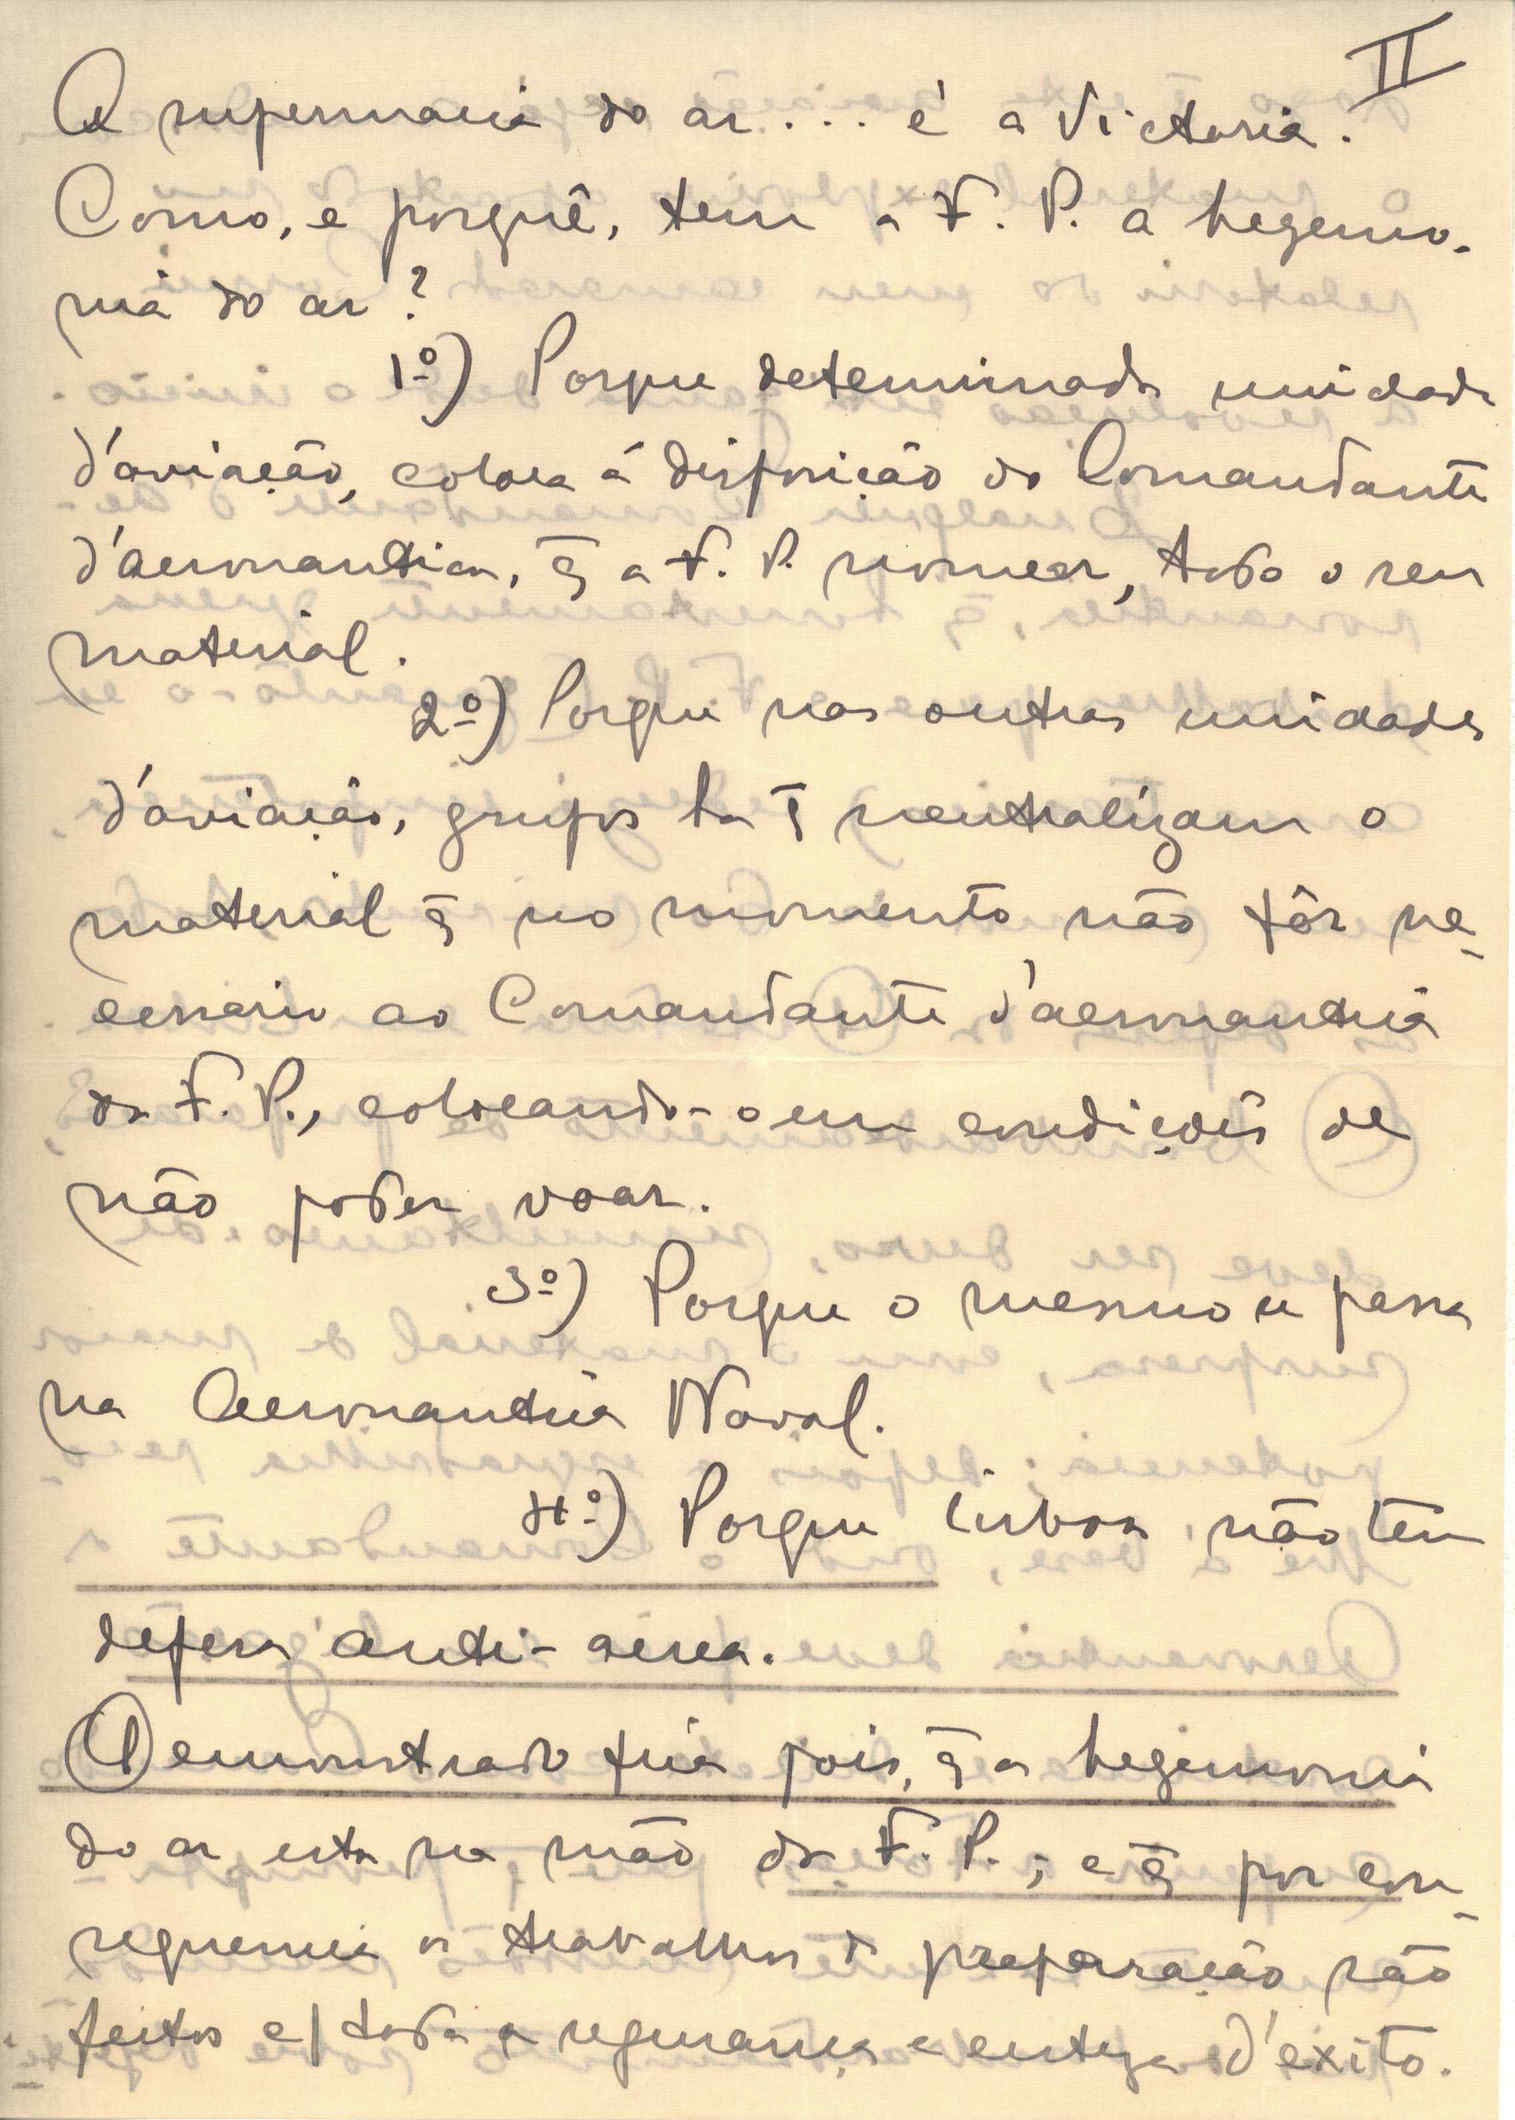 II
A supremacia do ar... é a Victoria.
Como, e porquê, tem a F. P. a hegemo-
nia do ar?
1º) Porque determinada unidade
d'aviação, coloca á disposição do Comandante
d'aeronautica, q̃ a F. P. nomear, todo o seu
material.
2º) Porque nas outras unidades
d'aviação, grupos ha q̃ neutralizam o
material q̃ no momento não fôr ne-
cessario ao Comandante d'aeronautica
da F. P., colocando-o em condições de
não poder voar.
3º) Porque o mesmo se passa
na Aeronautica Naval.
4º) Porque Lisboa, não tem
defesa anti-aerea.
Demonstrado fica pois, q̃ a hegemonia
do ar esta na mão da F. P.; e q̃ por con-
sequencia os trabalhos de preparação são
feitos c/ toda a segurança e certeza d'exito.